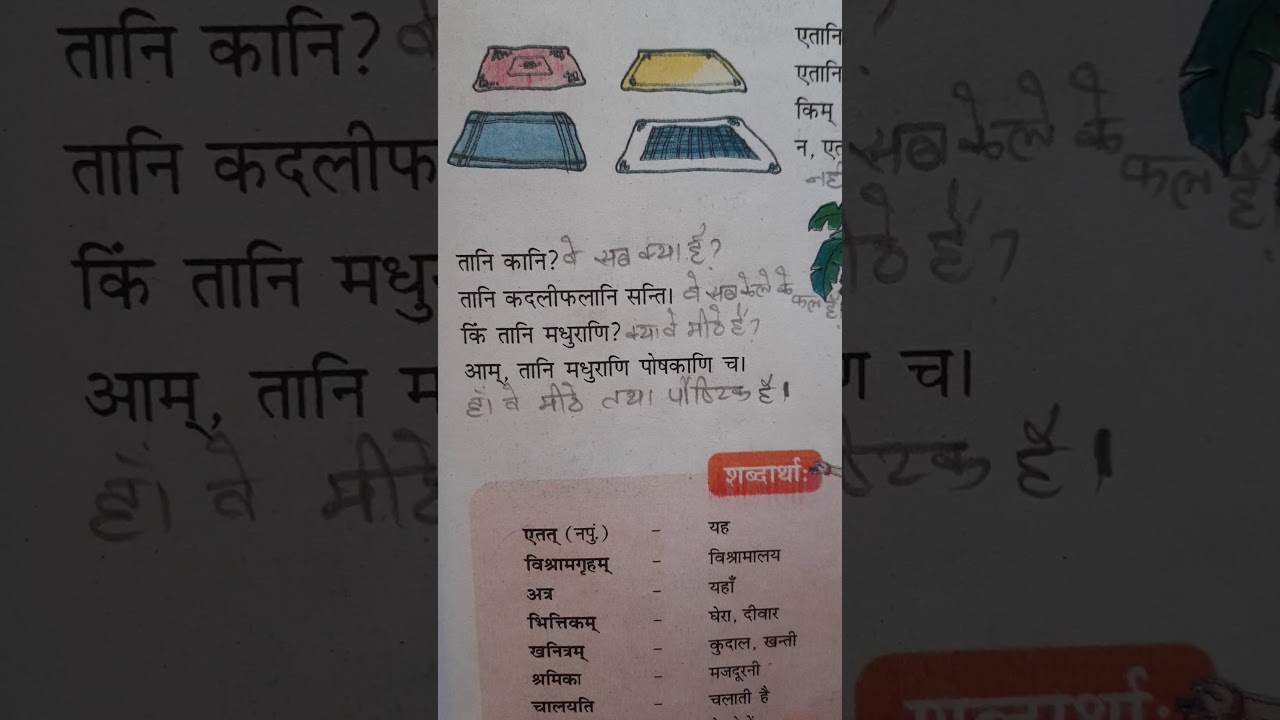 एतानि
एतानि
किम्
न, एत
नही
तानि कानि? वे सब क्या हैं?
तानि कदलीफलानि सन्ति। वे सब केले के
फल हैं
किं तानि मधुराणि? क्या वे मीठे हैं?
आम्, तानि मधुराणि पोषकाणि च।
हाँ। वे मीठे तथा पौष्टिक हैं।
शब्दार्थाः
एतत् (नपुं.) - यह
विश्रामगृहम् - विश्रामालय
अत्र - यहाँ
भित्तिकम् - घेरा, दीवार
खनित्रम् - कुदाल, खन्ती
श्रमिका - मजदूरनी
चालयति - चलाती है